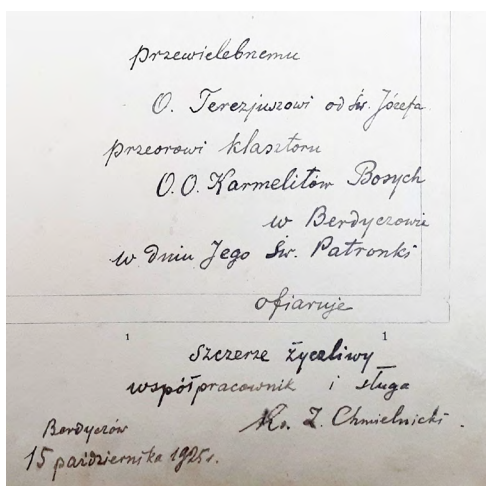 Przewielebnemu
O. Terezjuszowi od Św. Józefa
przeorowi klasztoru
O.O. Karmelitów Bosych
w Berdyczowie
w dniu Jego Św. Patronki
ofiaruje
1 1
szczerze życzliwy
współpracownik i sługa
Ks. Z. Chmielnicki.
Berdyczów
15 października 1925 r.